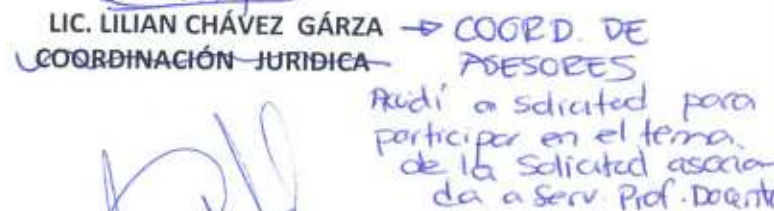 LIC. LILIAN CHÁVEZ GÁRZA → COORD. DE
COORDINACIÓN JURIDICA ASESORES
Acudí a solicitud para
participar en el tema
de la Solicitud asocia-
da a Serv. Prof. Docente